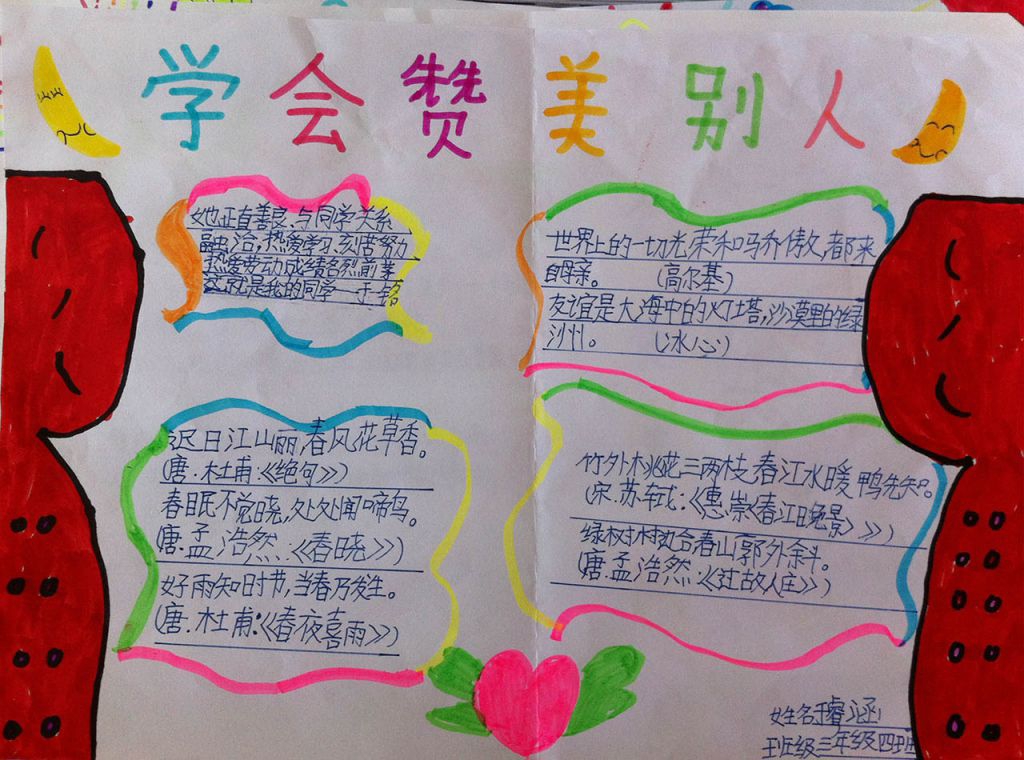 学会赞美别人
她正直善良、与同学关系
融洽,热爱学习,刻苦努力
热爱劳动成绩名列前茅
这就是我的同学
世界上的一切光荣和骄傲,都来
自母亲。 (高尔基)
友谊是大海中的灯塔,沙漠里的绿
洲。 (冰心)
迟日江山丽,春风花草香。
(唐.杜甫:《绝句》)
春眠不觉晓,处处闻啼鸟。
(唐.孟浩然:《春晓》)
好雨知时节,当春乃发生。
(唐.杜甫:《春夜喜雨》)
竹外桃花三两枝,春江水暖鸭先知。
(宋.苏轼:《惠崇《春江晚景》》)
绿树村边合,春山郭外斜。
(唐.孟浩然:《过故人庄》)
姓名 睿涵
班级三年级四班